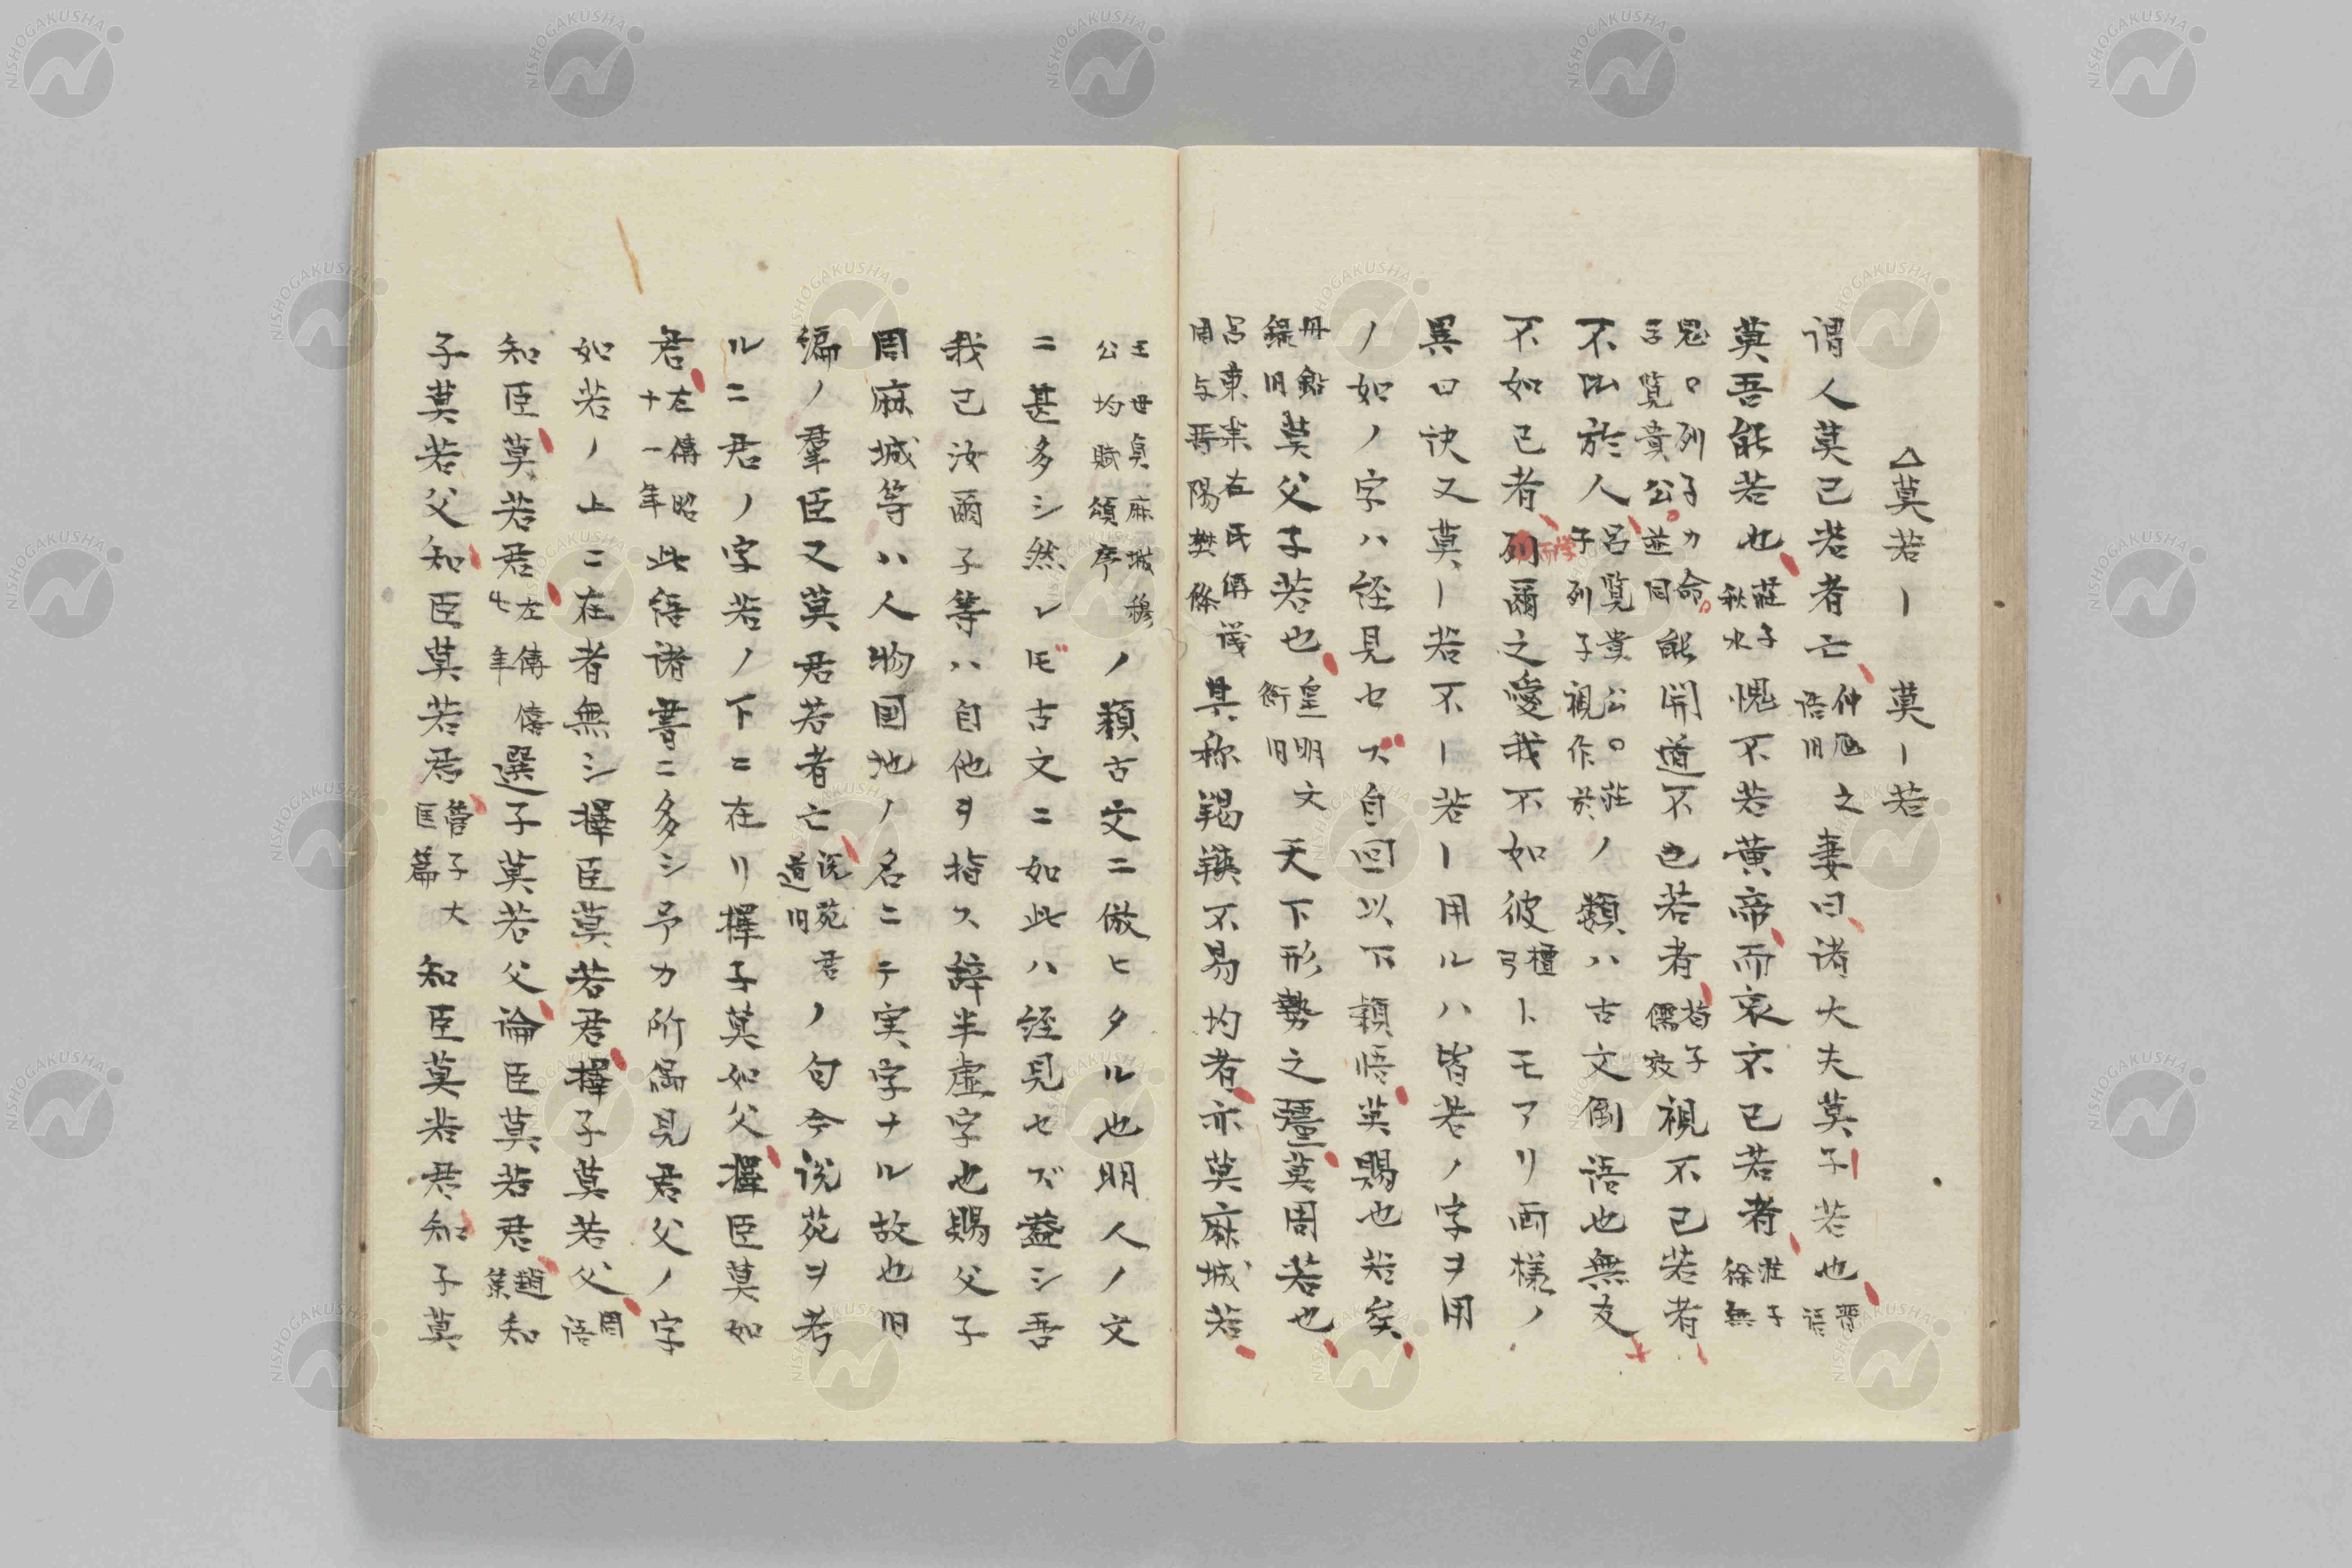 △莫若ー 莫ー若
謂人莫己若者亡仲虺之語旧妻曰諸大夫莫子若也晋語
莫吾能若也荘子秋水愧不若黄帝而哀不己若者荘子徐無
鬼○列子力命○子覧貴公並同能開道不己若者荀子儒效視不己若者
不比於人呂覧貴公○荘子列子視作於ノ類ハ古文倒語也無友
不如己者学而爾之愛我不如彼檀弓トモアリ両様ノ
異曰訣又莫ー若不ー若ー用ルハ皆若ノ字ヲ用
ノ如ノ字ハ経見セズ自囘以下穎悟莫賜也若矣
丹鉛録旧莫父子若也皇明文衡旧天下形勢之彊莫周若也
呂東莱左氏傳議周与晋陽樊條其称羯鞅不易均者亦莫麻城若
王世貞麻城穆公均賻頌序ノ類古文ニ倣ヒタル也明人ノ文
ニ甚多シ然レ𪜈古文ニ如此ハ経見セズ蓋シ吾
我己汝爾子等ハ自他ヲ指ス辞半虚字也賜父子
周麻城等ハ人物国地ノ名ニテ実字ナル故也旧
編ノ羣臣又莫君若者亡説苑君道旧ノ句今説苑ヲ考
ルニ君ノ字若ノ下ニ在リ擇子莫如父擇臣莫如
君左傳昭十一年此語諸書ニ多シ予カ所編見君父ノ字
如若ノ上ニ在者無シ擇臣莫若君擇子莫若父周語
知臣莫若君左傳僖七年選子莫若父論臣莫若君趙策知
子莫若父知臣莫若君管子大匡篇知臣莫若君知子莫